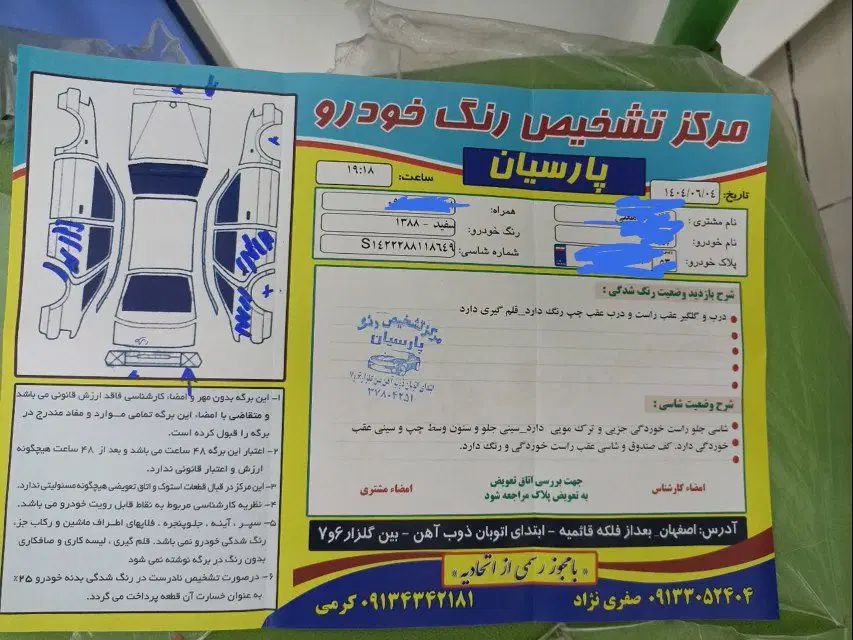 مرکز تشخیص رنگ خودرو
پارسیان
تاریخ: ۱۴۰۴/۰۶/۰۴
ساعت: ۱۹:۱۸
نام مشتری:
همراه:
نام خودرو:
رنگ خودرو: سفید - ۱۳۸۸
پلاک خودرو: ۵۳
شماره شاسی: S۱۴۲۲۲۸۸۱۱۸۶۴۹
شرح بازدید وضعیت رنگ شدگی:
درب و گلگیر عقب راست و درب عقب چپ رنگ دارد_قلم گیری دارد
مرکز تشخیص رنگ
پارسیان
ابتدای اتوبان ذوب آهن بین گلزار۶و۷
۳۷۸۰۴۲۵۱
شرح وضعیت شاسی:
شاسی جلو راست خوردگی جزیی و ترک مویی دارد_سینی جلو و ستون وسط چپ و سینی عقب
خوردگی دارد. کف صندوق و شاسی عقب راست خوردگی و رنگ دارد.
امضاء کارشناس
جهت بررسی اتاق تعویض
به تعویض پلاک مراجعه شود
امضاء مشتری
آدرس: اصفهان_ بعداز فلکه قائمیه - ابتدای اتوبان ذوب آهن - بین گلزار ۶و۷
«بامجوز رسمی از اتحادیه»
۰۹۱۳۳۰۵۲۴۰۴ صفری نژاد
۰۹۱۳۴۳۴۲۱۸۱ کرمی
۱- این برگه بدون مهر و امضاء کارشناسی فاقد ارزش قانونی می باشد
و متقاضی با امضاء این برگه تمامی مـوارد و مفاد مندرج در
برگه را قبول کرده است.
۲- اعتبار این برگه ۴۸ ساعت می باشد و بعد از ۴۸ ساعت هیچگونه
ارزش و اعتبار قانونی ندارد.
۳- این مرکز در قبال قطعات استوک و اتاق تعویضی هیچگونه مسئولیتی ندارد.
۴- نظریه کارشناسی مربوط به نقاط قابل رویت خودرو می باشد.
۵- سپـر ، آینـه ، جلوپنجره ، فلاپهای اطـراف ماشین و رکاب جزء
رنگ شدگی خودرو نمی باشد. قلم گیری ، لیسه کاری و صافکاری
بدون رنگ در برگه نوشته نمی شود
۶- درصورت تشخیص نادرست در رنگ شدگی بدنه خودرو ۲۵٪
به عنوان خسارت آن قطعه پرداخت می گردد.